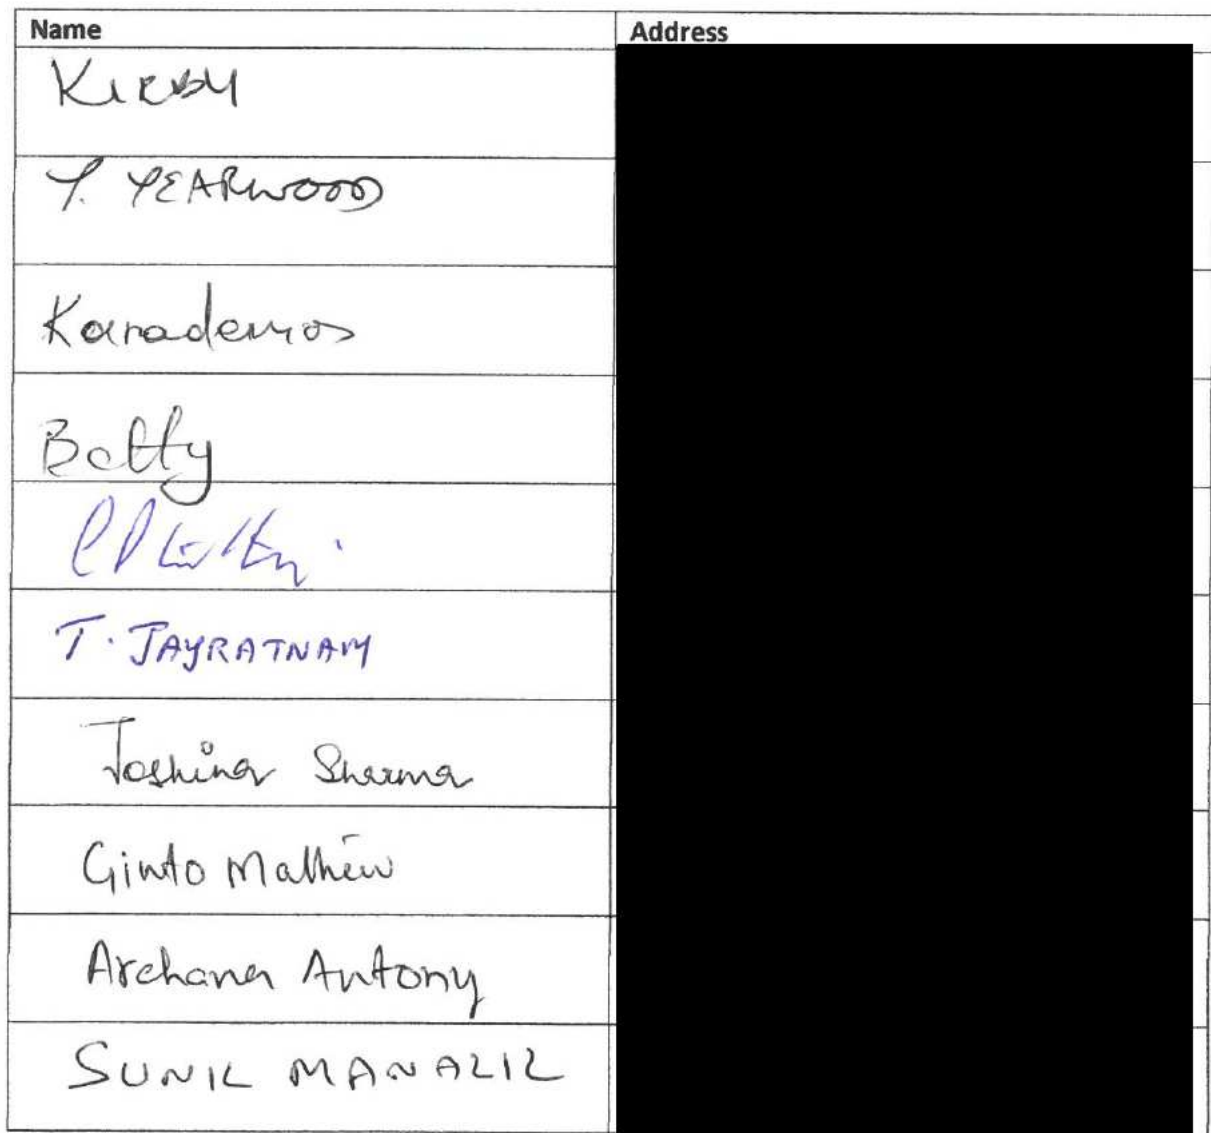 Name Address
KIRBY
Y. YEARWOOD
Karademos
Betty
T. JAYRATNAM
Joshina Sharma
Ginto Mathew
Archana Antony
SUNIL MANAZIL